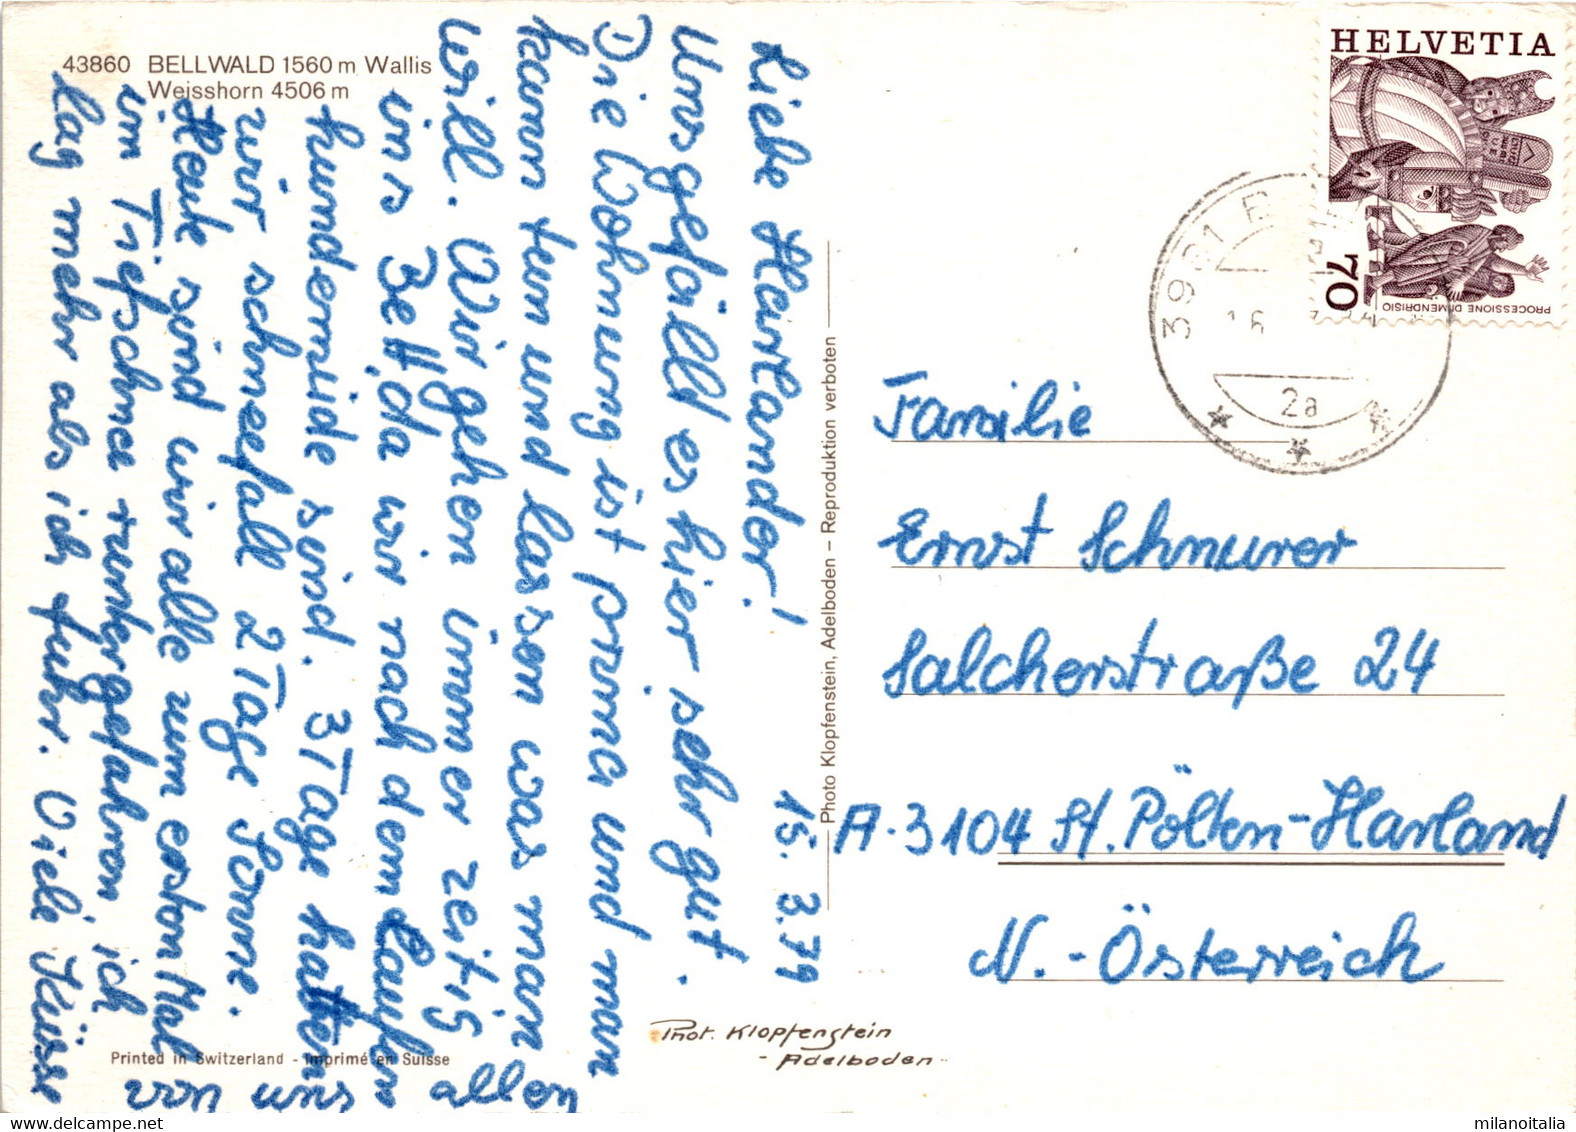 43860 BELLWALD 1560 m Wallis
Weisshorn 4506 m
15. 3. 79
Liebe Harlander!
Uns gefällt es hier sehr gut.
Die Wohnung ist prima und man
kann tun und lassen was man
will. Wir gehen immer zeitig
ins Bett, da wir nach dem Laufen
hundemüde sind. 3 Tage hatten
wir schneefall 2 Tage Sonne.
Heute sind wir alle zum ersten Mal
im Tiefschnee runtergefahren, ich
lag mehr als ich fuhr. Viele Küsse
von uns allen
Printed in Switzerland - Imprimé en Suisse
Photo Klopfenstein, Adelboden – Reproduktion verboten
Phot. Klopfenstein
- Adelboden -
HELVETIA
70
PROCESSIONE DI MENDRISIO
2a
Familie
Ernst Schnurer
Salcherstraße 24
A-3104 St. Pölten-Harland
N.-Österreich
milanoitalia